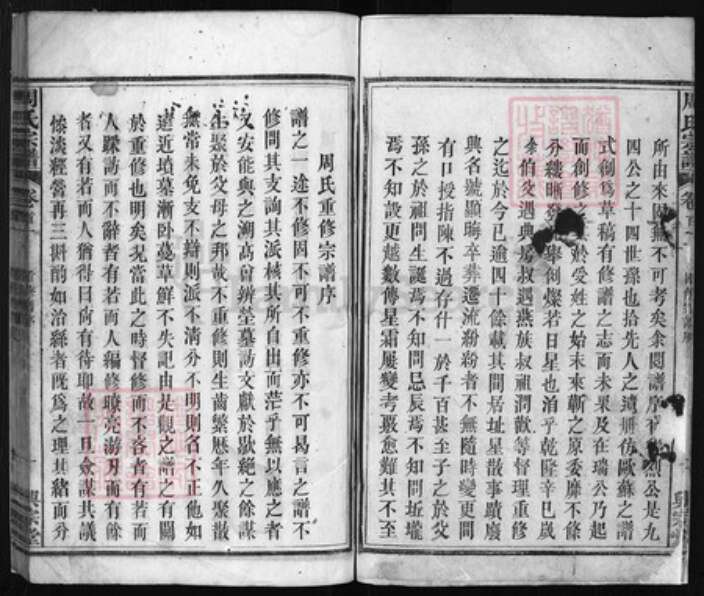 所由來因無不可考矣余閱譜序
公是九
四公之十四世孫也拾先人之遺無仿歐蘇之譜
式創爲草稿有修譜之志而未果及在瑞公乃起
而創修之於受姓之始末東蘄之原委靡不條
分縷晰
舉倒燦若日星也洎乎乾隆辛巳歲
伯父遇典房叔遇燕族叔祖潤歡等督理重修
之迄於今已逾四十餘載其間居址星散事蹟廢
興名號顯晦卒葬遷流紛紛者不無隨時變更間
有口授指陳不過存什一於千百甚至子之於父
孫之於祖問生誕焉不知問忌辰焉不知問坵壠
焉不知設更越數傳星霜屢變考覈愈難其不至
周氏重修宗譜序
譜之一途不修固不可不重修亦不可曷言之譜不
修問其支詢其派核其所自出而茫乎無以應之者
又安能與之溯高曾辨塋墓訪文獻於歇絕之餘謀
生聚於父母之邦故不重修則生齒繁歷年久聚散
無常未免支不辯則派不清分不明則名不正他如
遠近墳墓漸卧蔓草鮮不失記由是觀之譜之有關
於重修也明矣況當此之時督修而不吝者有若而
人踩訪而不辭者有若而人編修瞭亮游刃而有餘
者又有若而人猶得曰尚有待耶故一旦僉謀其議
慘淡經營再三斟酌如治絲者旣爲之理其緒而分
周氏宗譜
卷首
周氏宗譜
卷首